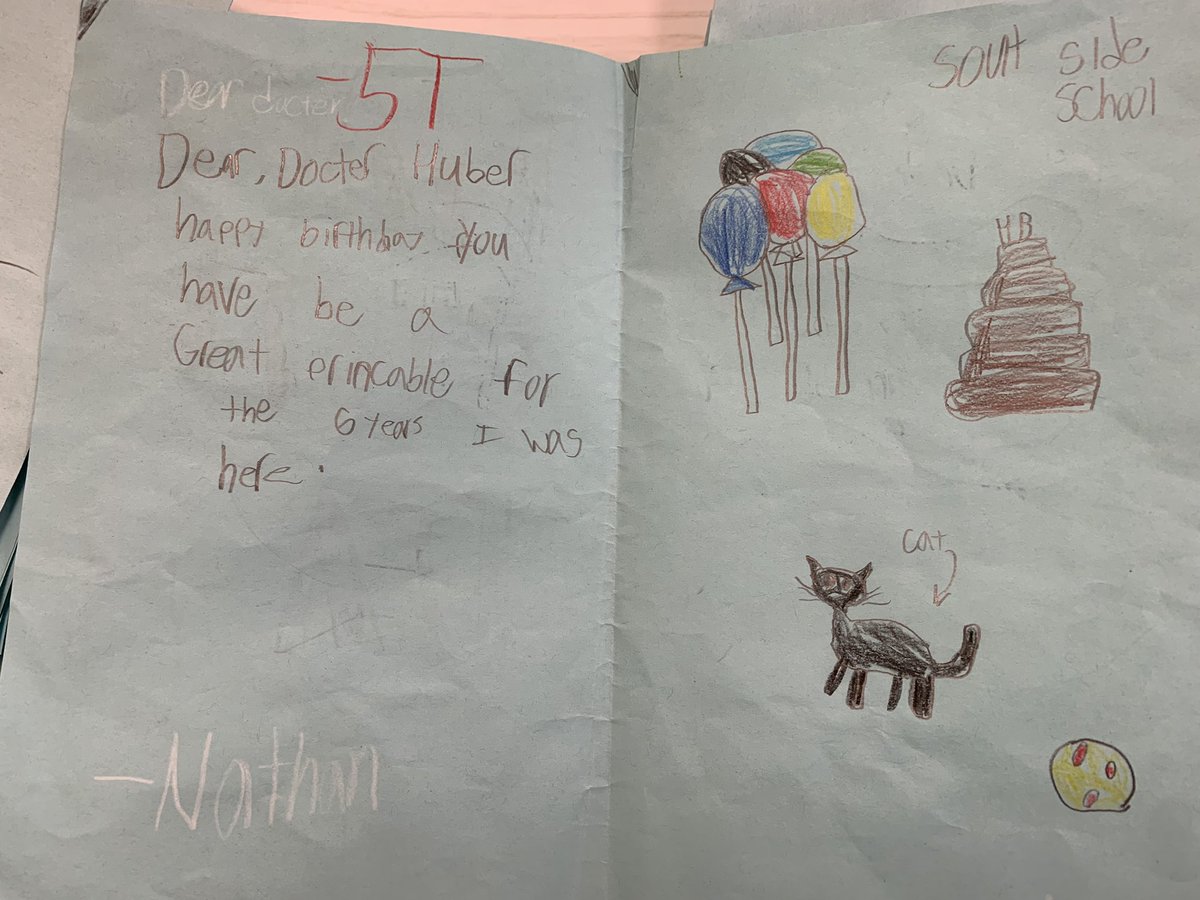 Dear docter
-5T
Dear, Docter Huber
happy birthday you
have be a
Great erincable for
the 6 years I was
here.
-Nathan
SOUt SIde
SChool
HB
cat